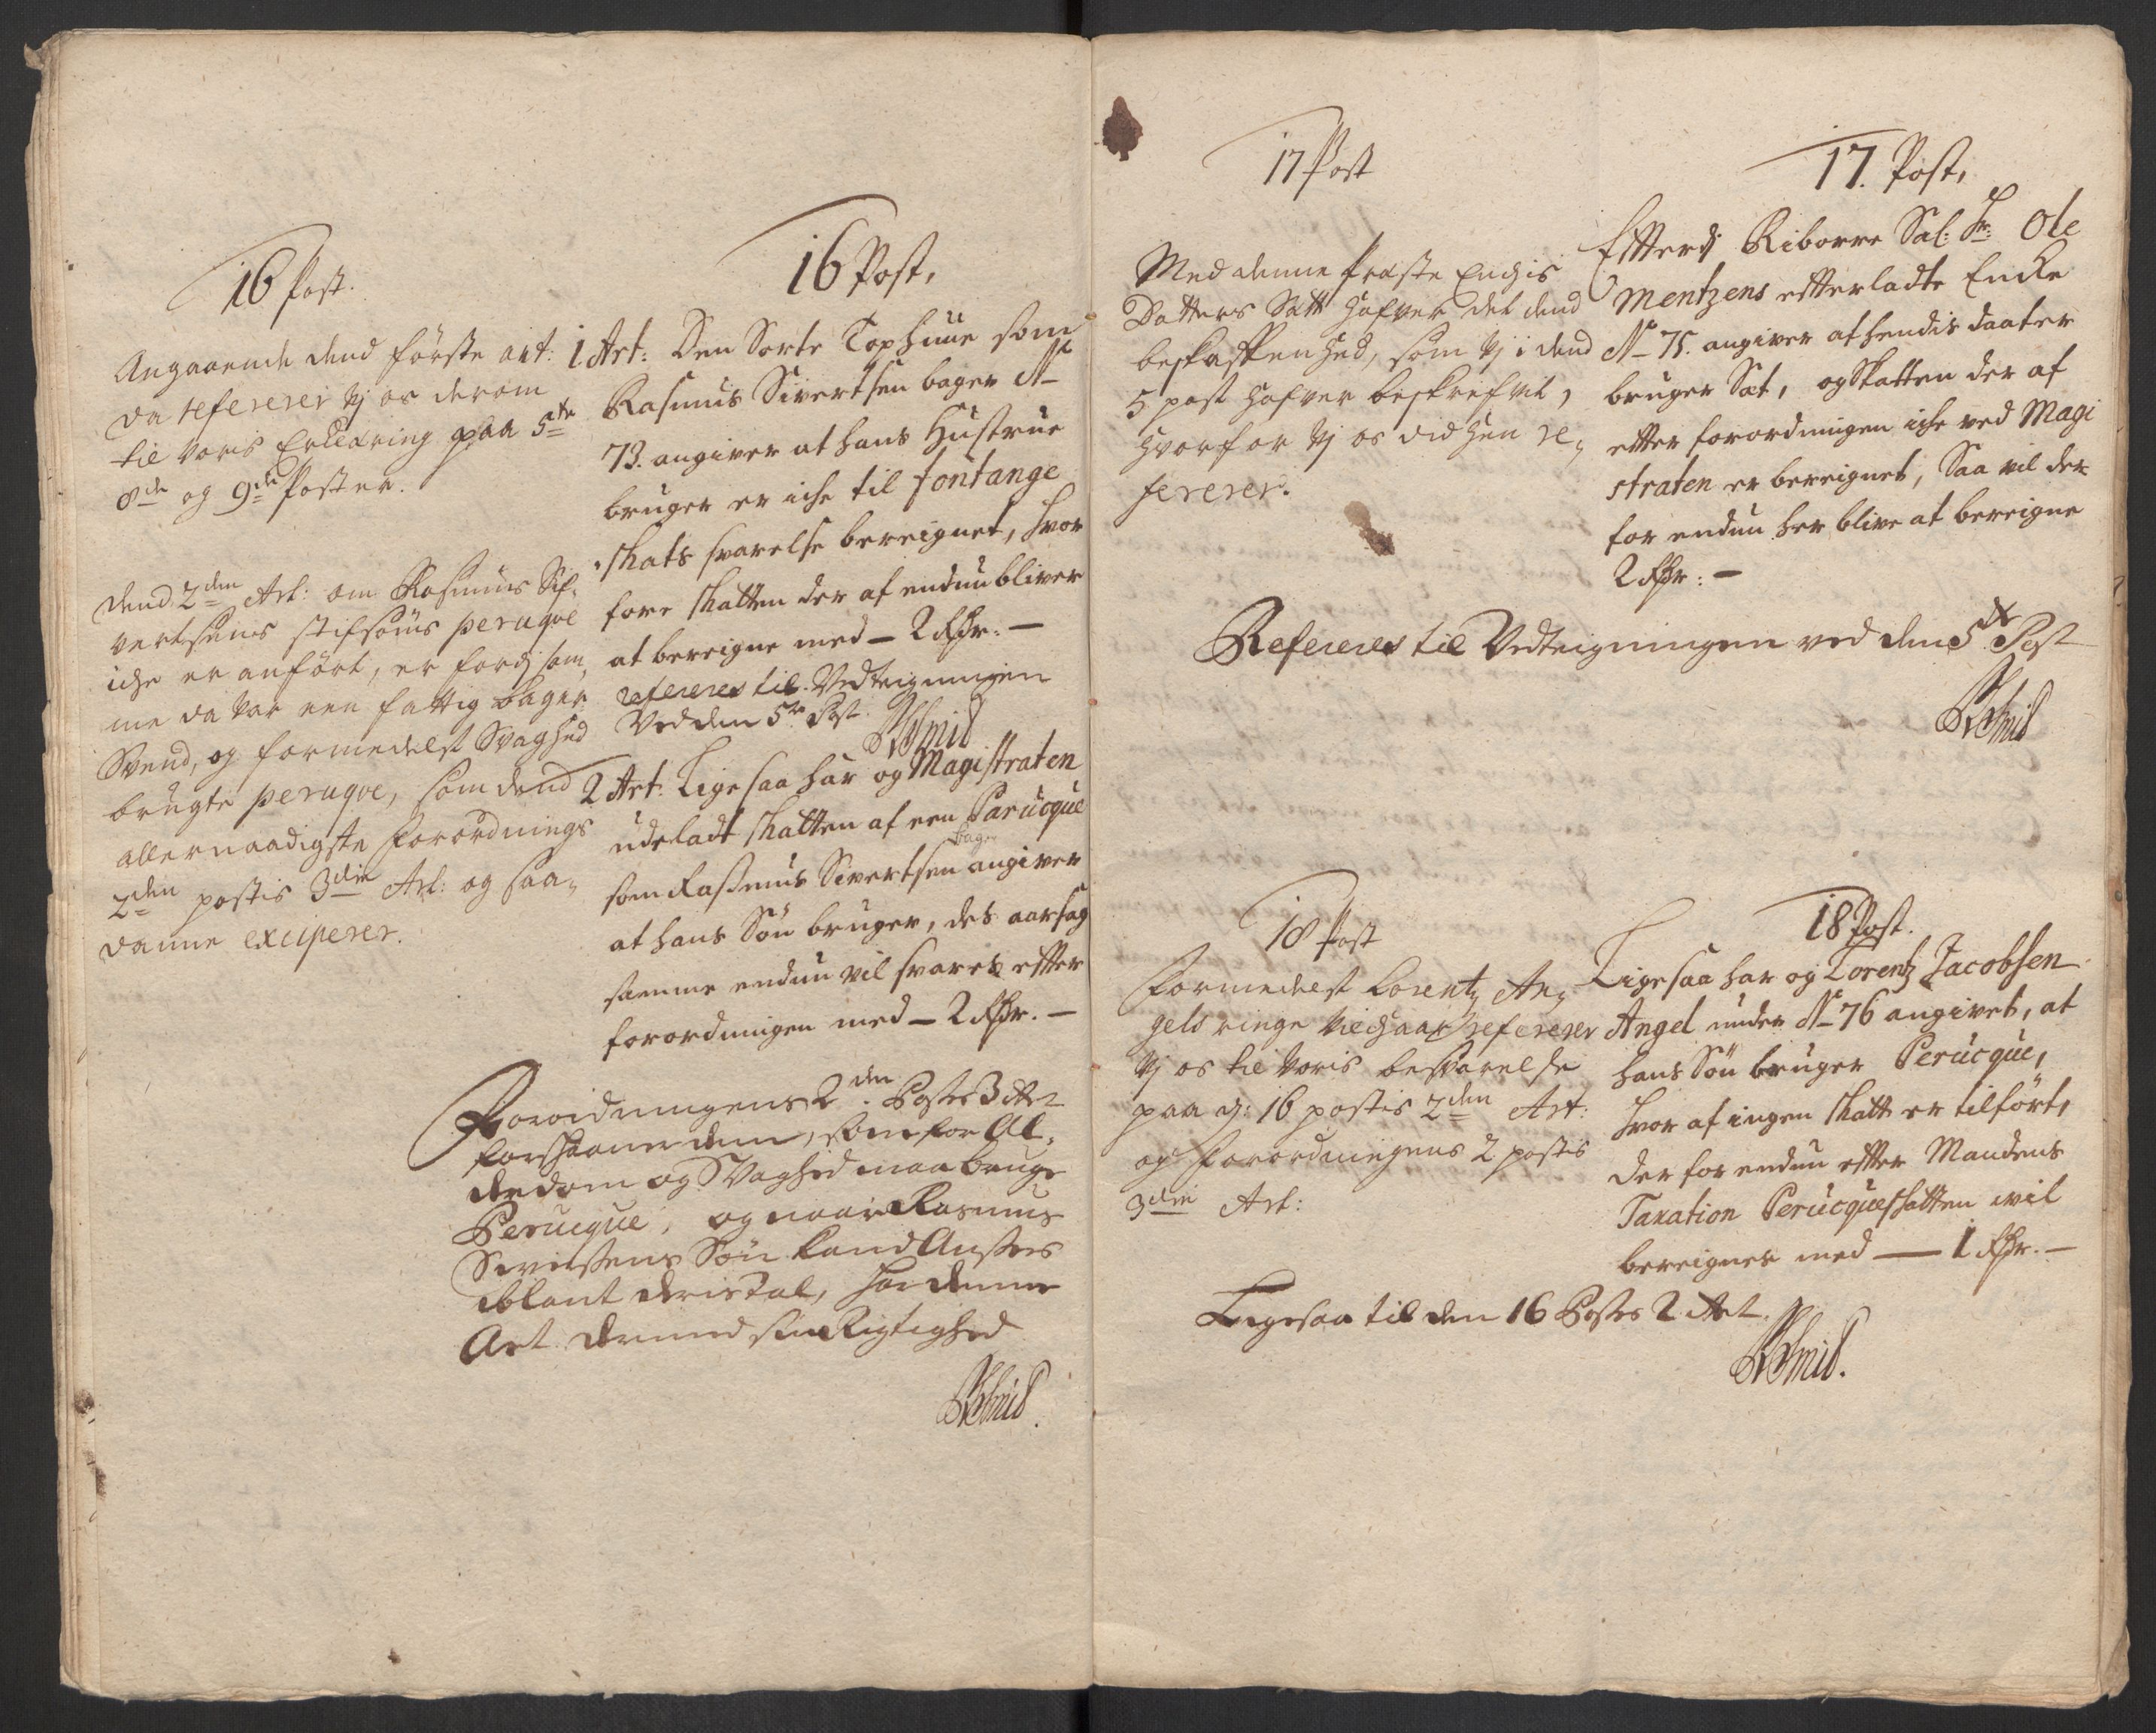 16 Post.
Angaaende dend förste art:
da refererer vj os derom
til voris Erklæring paa 5te
8de og 9de Poster.
Dend 2den Art: om Rasmus Sif,
vertsøns stifsøns peruqve
iche er anført, er fordj sam,
me da var een fattig bager
Svend, og formedelst Svaghed
brugte peruqve, som dend
allernaadigste forordnings
2den postis 3die Art: og saa,
danne exciperer.
16 Post,
1 Art: Den Sorte Tophuue som
Rasmus Sivertsen bager No
73. angiver at hans Hustrue
bruger er iche til fontange
skats svarelse bereignet, hvor
fore skatten der af endnu bliver
at bereigne med – 2 Rdr. –
refereres til Vedteigningen
Ved den 5te Post.
Schmid
2 Art: Lige saa har og Magistraten
udeladt skatten af een Parucque
bager
som Rasmus Sivertsen angiver
at hans Søn bruger, des aarsag
samme endnu vil svares efter
forordningen med – 2 Rdr. –
Forordningens 2den Postes 3 Art
forskaaner dem, som for Al,
derdom og Svaghed maa bruge
Perucque, og naar Rasmus
Sivertsens Søn kand Ansees
iblant deris Tal, har denne
Art dermed sin Rigtighed
Schmid.
17 Post
Med denne Præste Enchis
Datters Sætt hafver det dend
beskaffenhed, som vj i dend
5 post hafver beskrefvet,
hvorfor vj os did hen re,
fererer.
17. Post,
Efterdj Riborre Sal: Hr: Ole
Mentzens efterladte Encke
No 75. angiver at hendis daater
bruger Sæt, og Skatten der af
etter forordningen iche ved Magi
straten er bereignet, Saa vil der
for endnu her blive at bereigne
2 Rdr: –
Refereres til Vedteigningen ved den 5te Post
Schmid
18 Post
Formedelst Lorentz An,
gels ringe vilchaar refererer
vj os til voris besvarelse
paa d: 16 postis 2den Art:
og forordningens 2 postis
3die Art:
18 Post.
Ligesaa har og Lorentz Jacobsen
Angel under No 76 angivet, at
hans Søn bruger Perucque,
hvor af ingen skatt er tilført,
der for endnu efter Mandens
Taxation Perucqueskatten vil
bereignes med — 1 Rdr. –
Ligesaa til den 16 Postes 2 Art.
Schmid.